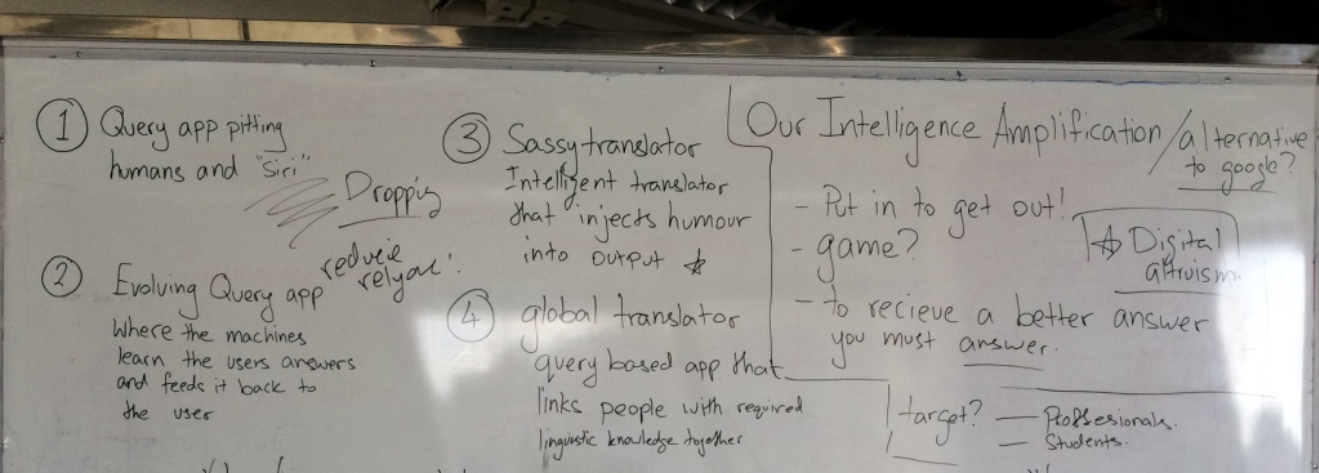 ① Query app pitting
humans and "Siri"
Dropping
② Evolving Query app
reduce
Where the machines
learn the users answers
and feeds it back to
the user
③ Sassy translator
Intelligent translator
that injects humour
into output ☆
④ global translator
query based app that
links people with required
linguistic knowledge together
Our Intelligence Amplification / alternative
to google?
- Put in to get out!
- game?
☆ Digital
altruism.
- to recieve a better answer
you must answer.
target? — Proffesionals.
— Students.